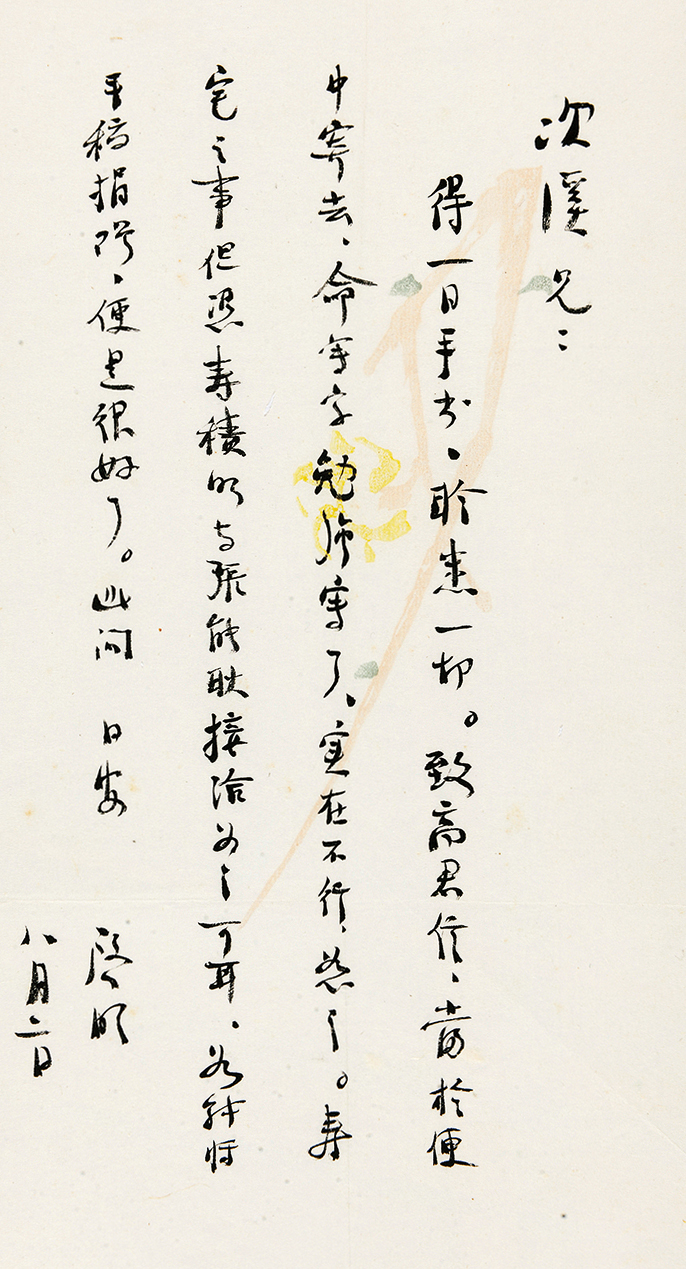 次溪兄：
得一日手书、聆悉一切。致高君信、当於便
中寄去、命写字勉强写了、实在不行、恕之。寿
宅之事但憑寿積明与張能耿接洽为之可耳、如能将
手稿捐贈、便是很好了。此问 日安
启明
八月二日